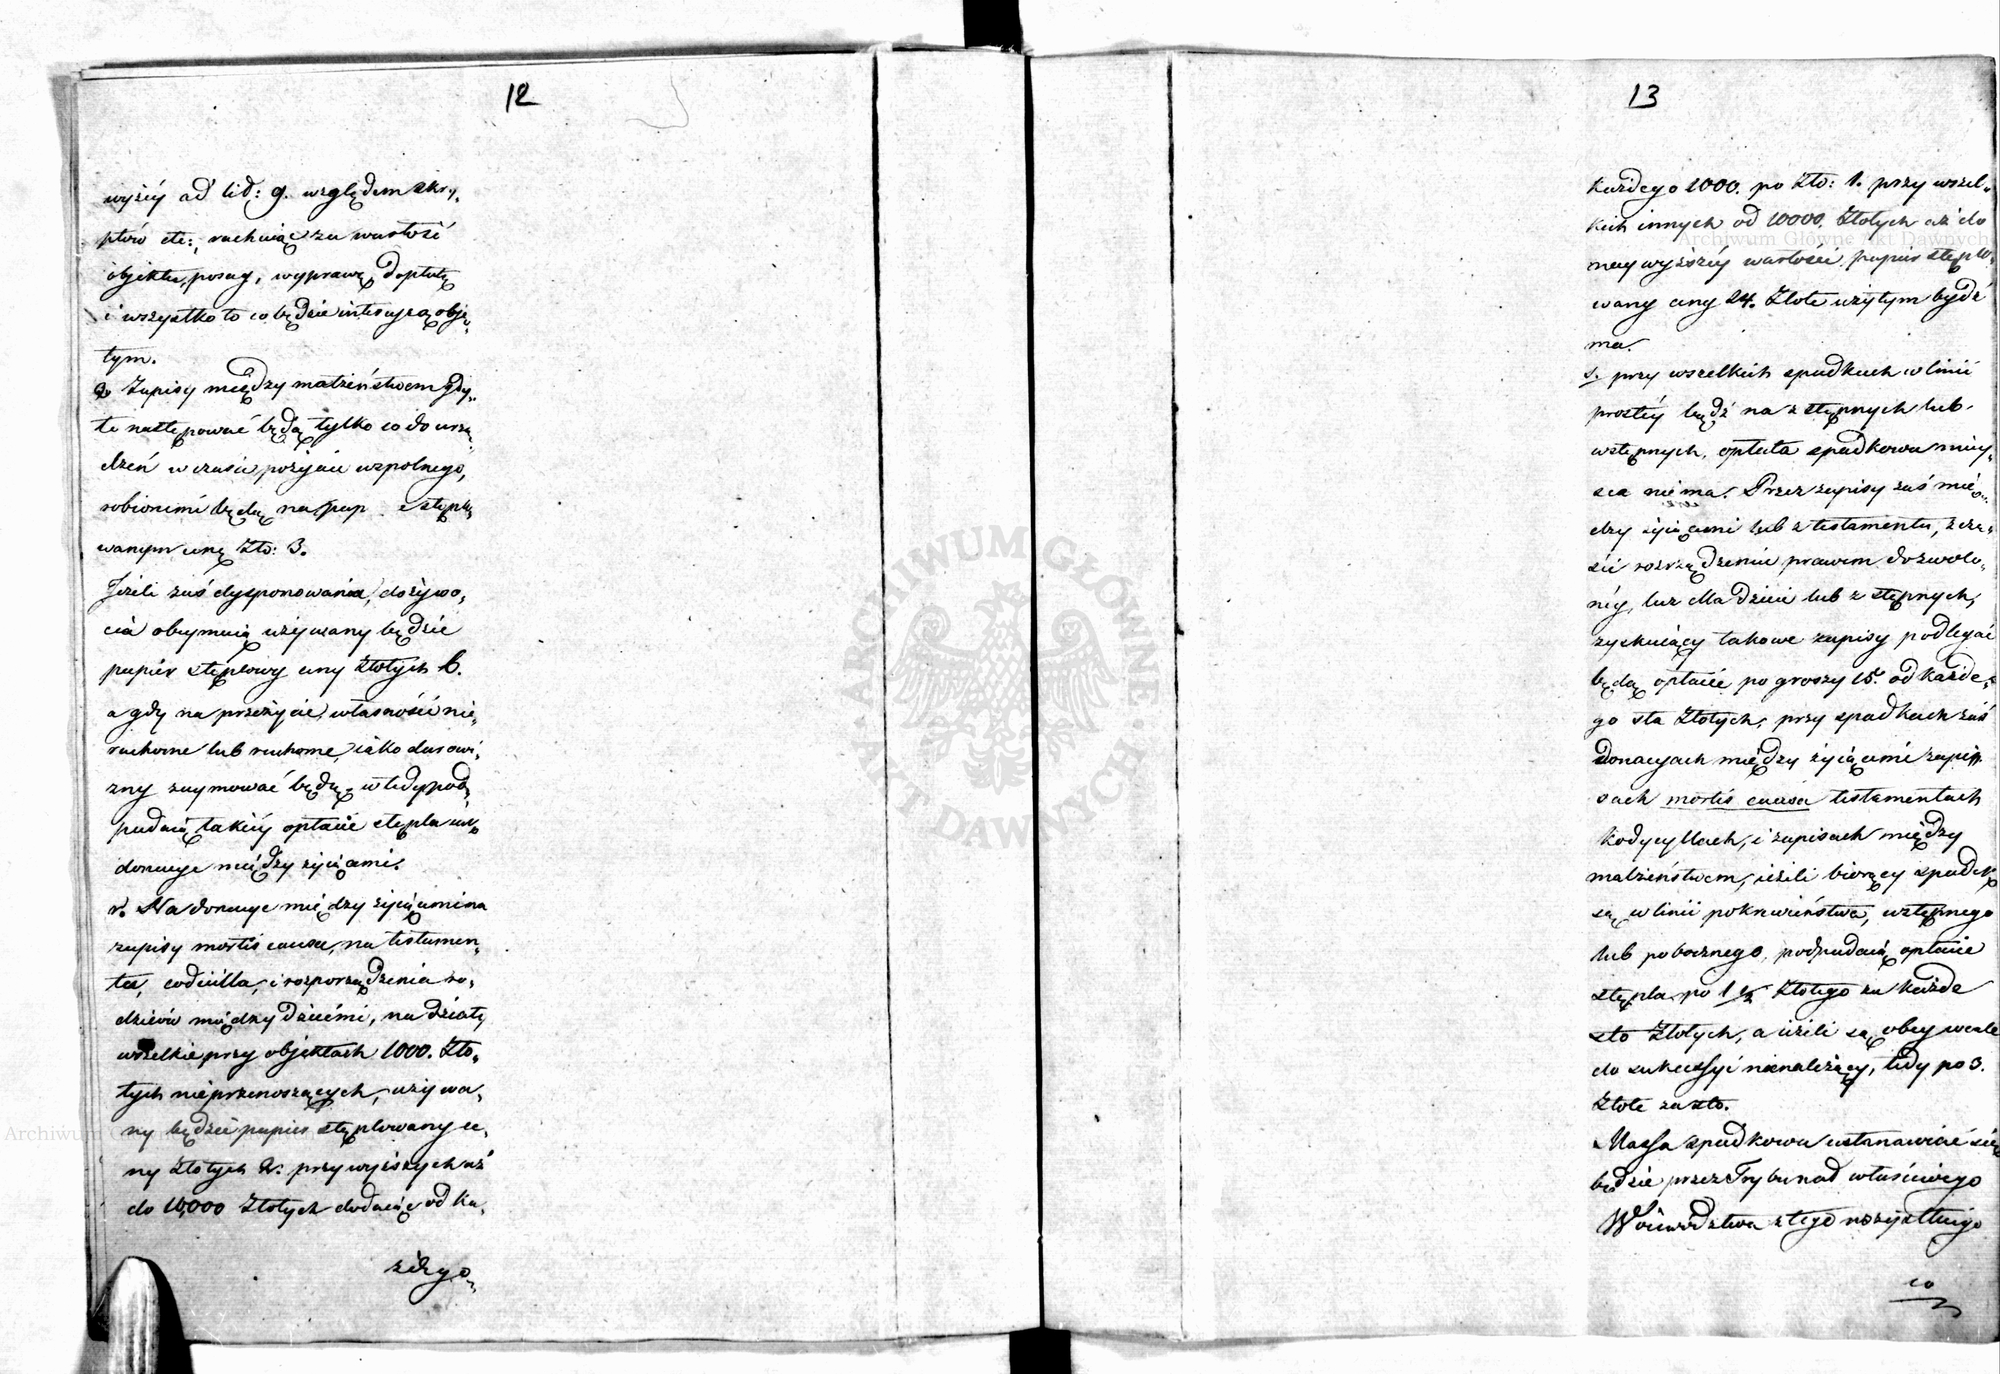 12
wyżey ad lit: g. względem skry„
ptów etc:, rachuiąc za wartość
objektu, posag, wyprawę, dopłatę
i wszystko to co będzie intercyzą obię„
tym.
q. Zapisy między małżeństwem gdy„
te następować będą tylko co do urzą„
dzeń w czasie pożycia wspolnego,
robionemi będą na pap e stęplo„
wanym ceny Zło: 3.
Jeżeli zaś dysponowania, dożywo„
cia obeymuią używany będzie
papier stęplowy ceny Złotych 6.
a gdy na przeżycie, własności nie„
ruchome lub ruchome, iako darowi„
zny zaymować będą, wtedy pod„
padaią takiey opłacie stępla iak
donacye między żyiącemi.
r. Na donacye między żyiącemi na
zapisy mortis causa, na testamen„
ta, codicilla, i rozporządzenia ro„
dziców między dziećmi, na działy
wszelkie przy objektach 1000. Zło„
tych nieprzenoszących, używa„
ny będzie papier stęplowany ce„
ny Złotych 2. przy wyższych aż
do 10,000 Złotych dodaiąc od ka„
żdego„
13
każdego 1000. po Zło: 1. przy wszel„
kich innych od 10000. Złotych aż do
naywyższey wartości papier stęplo„
wany ceny 24. Złote użytym bydź
ma.
s. przy wszelkich spadkach w linii
prostey bądź na zstępnych lub
wstępnych, opłata spadkowa miey„
sca nie ma. Przez zapisy zaś mię„
dzy żyiącemi lub z testamentu, z czę„
ści rozrządzeniu prawem dozwolo„
ney, lub dla dzieci lub zstępnych,
zyskuiący takowe zapisy podlegać
będą opłacie po groszy 15. od każde„
go sta Złotych, przy spadkach zaś
donacyach między żyiącemi zapi„
sach mortis causa testamentach
kodycyllach, i zapisach między
małżeństwem, ieżeli biorący spadek
są w linii pokrewieństwa, wstępnego
lub pobocznego, podpadaią opłacie
stępla po 1 1/2 Złotego za każde
sto Złotych, a ieżeli są obcy wcale
do sukcessyi nienależący, tedy po 3.
Złote za sto.
Massa spadkowa ustanawiać się
będzie przez Trybunał właściwego
Woiewództwa z tego wszystkiego
co
Archiwum Główne Akt Dawnych
ARCHIWUM GŁÓWNE AKT DAWNYCH